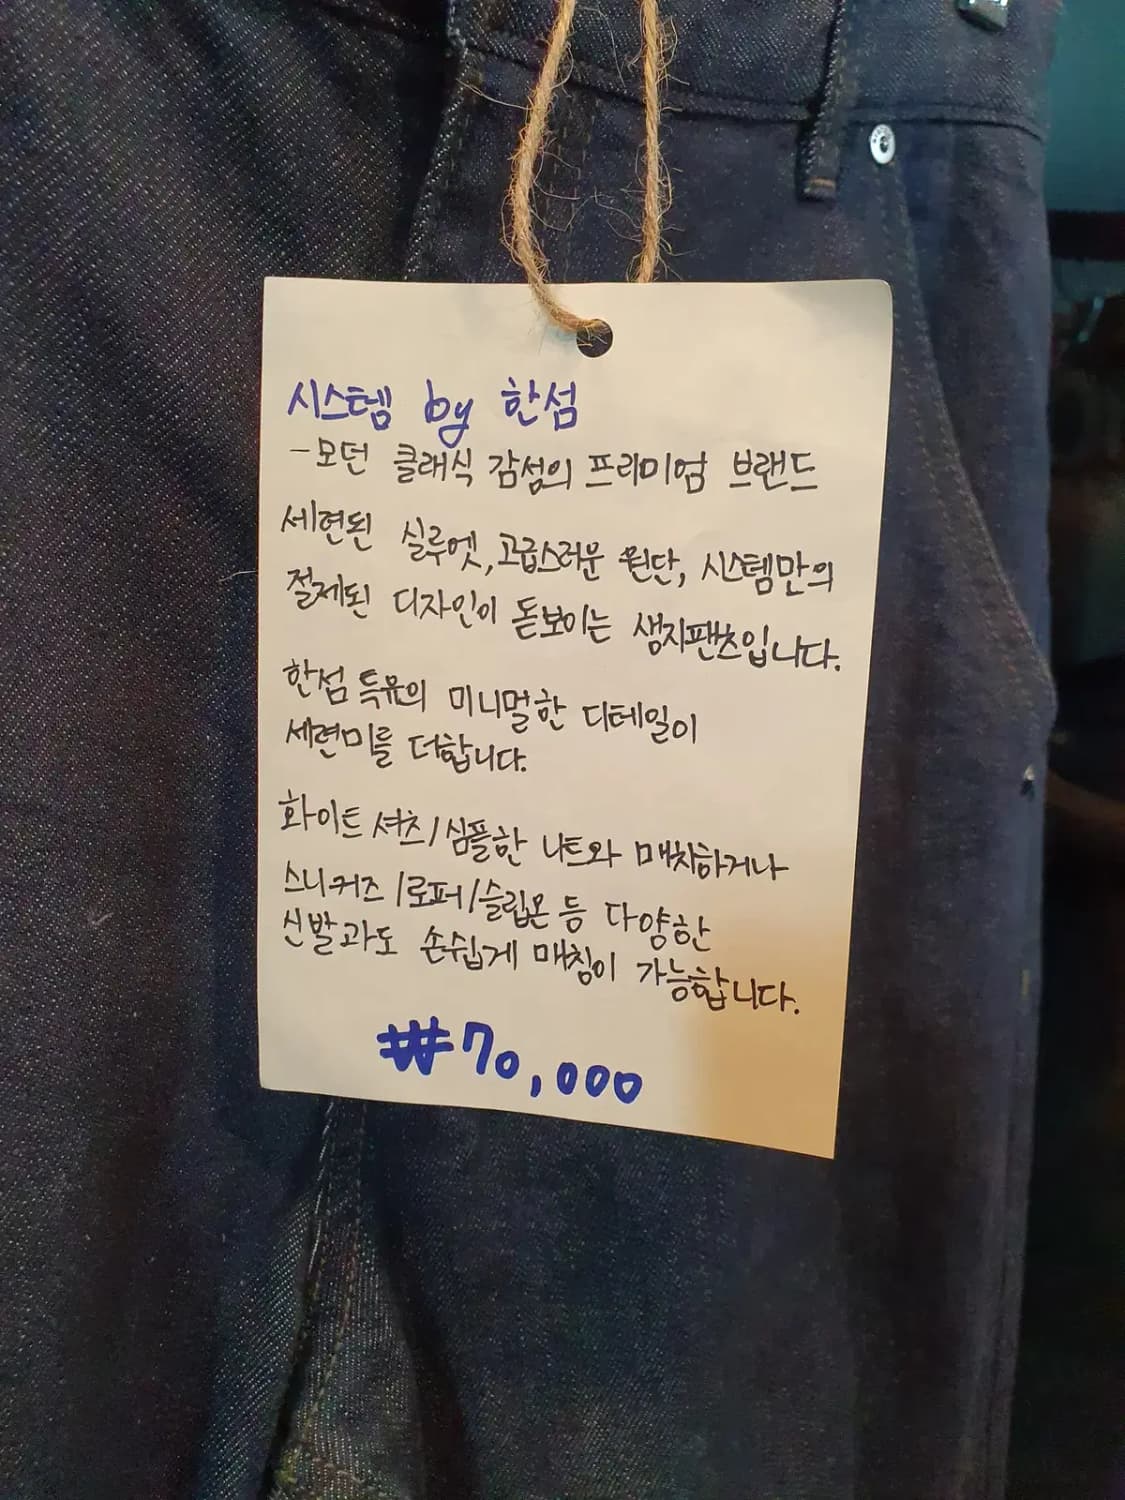 시스템 by 한섬
- 모던 클래식 감성의 프리미엄 브랜드
세련된 실루엣, 고급스러운 원단, 시스템만의
절제된 디자인이 돋보이는 생지팬츠입니다.
한섬 특유의 미니멀한 디테일이
세련미를 더합니다.
화이트 셔츠/심플한 니트와 매치하거나
스니커즈/로퍼/슬립온 등 다양한
신발과도 손쉽게 매칭이 가능합니다.
₩70,000